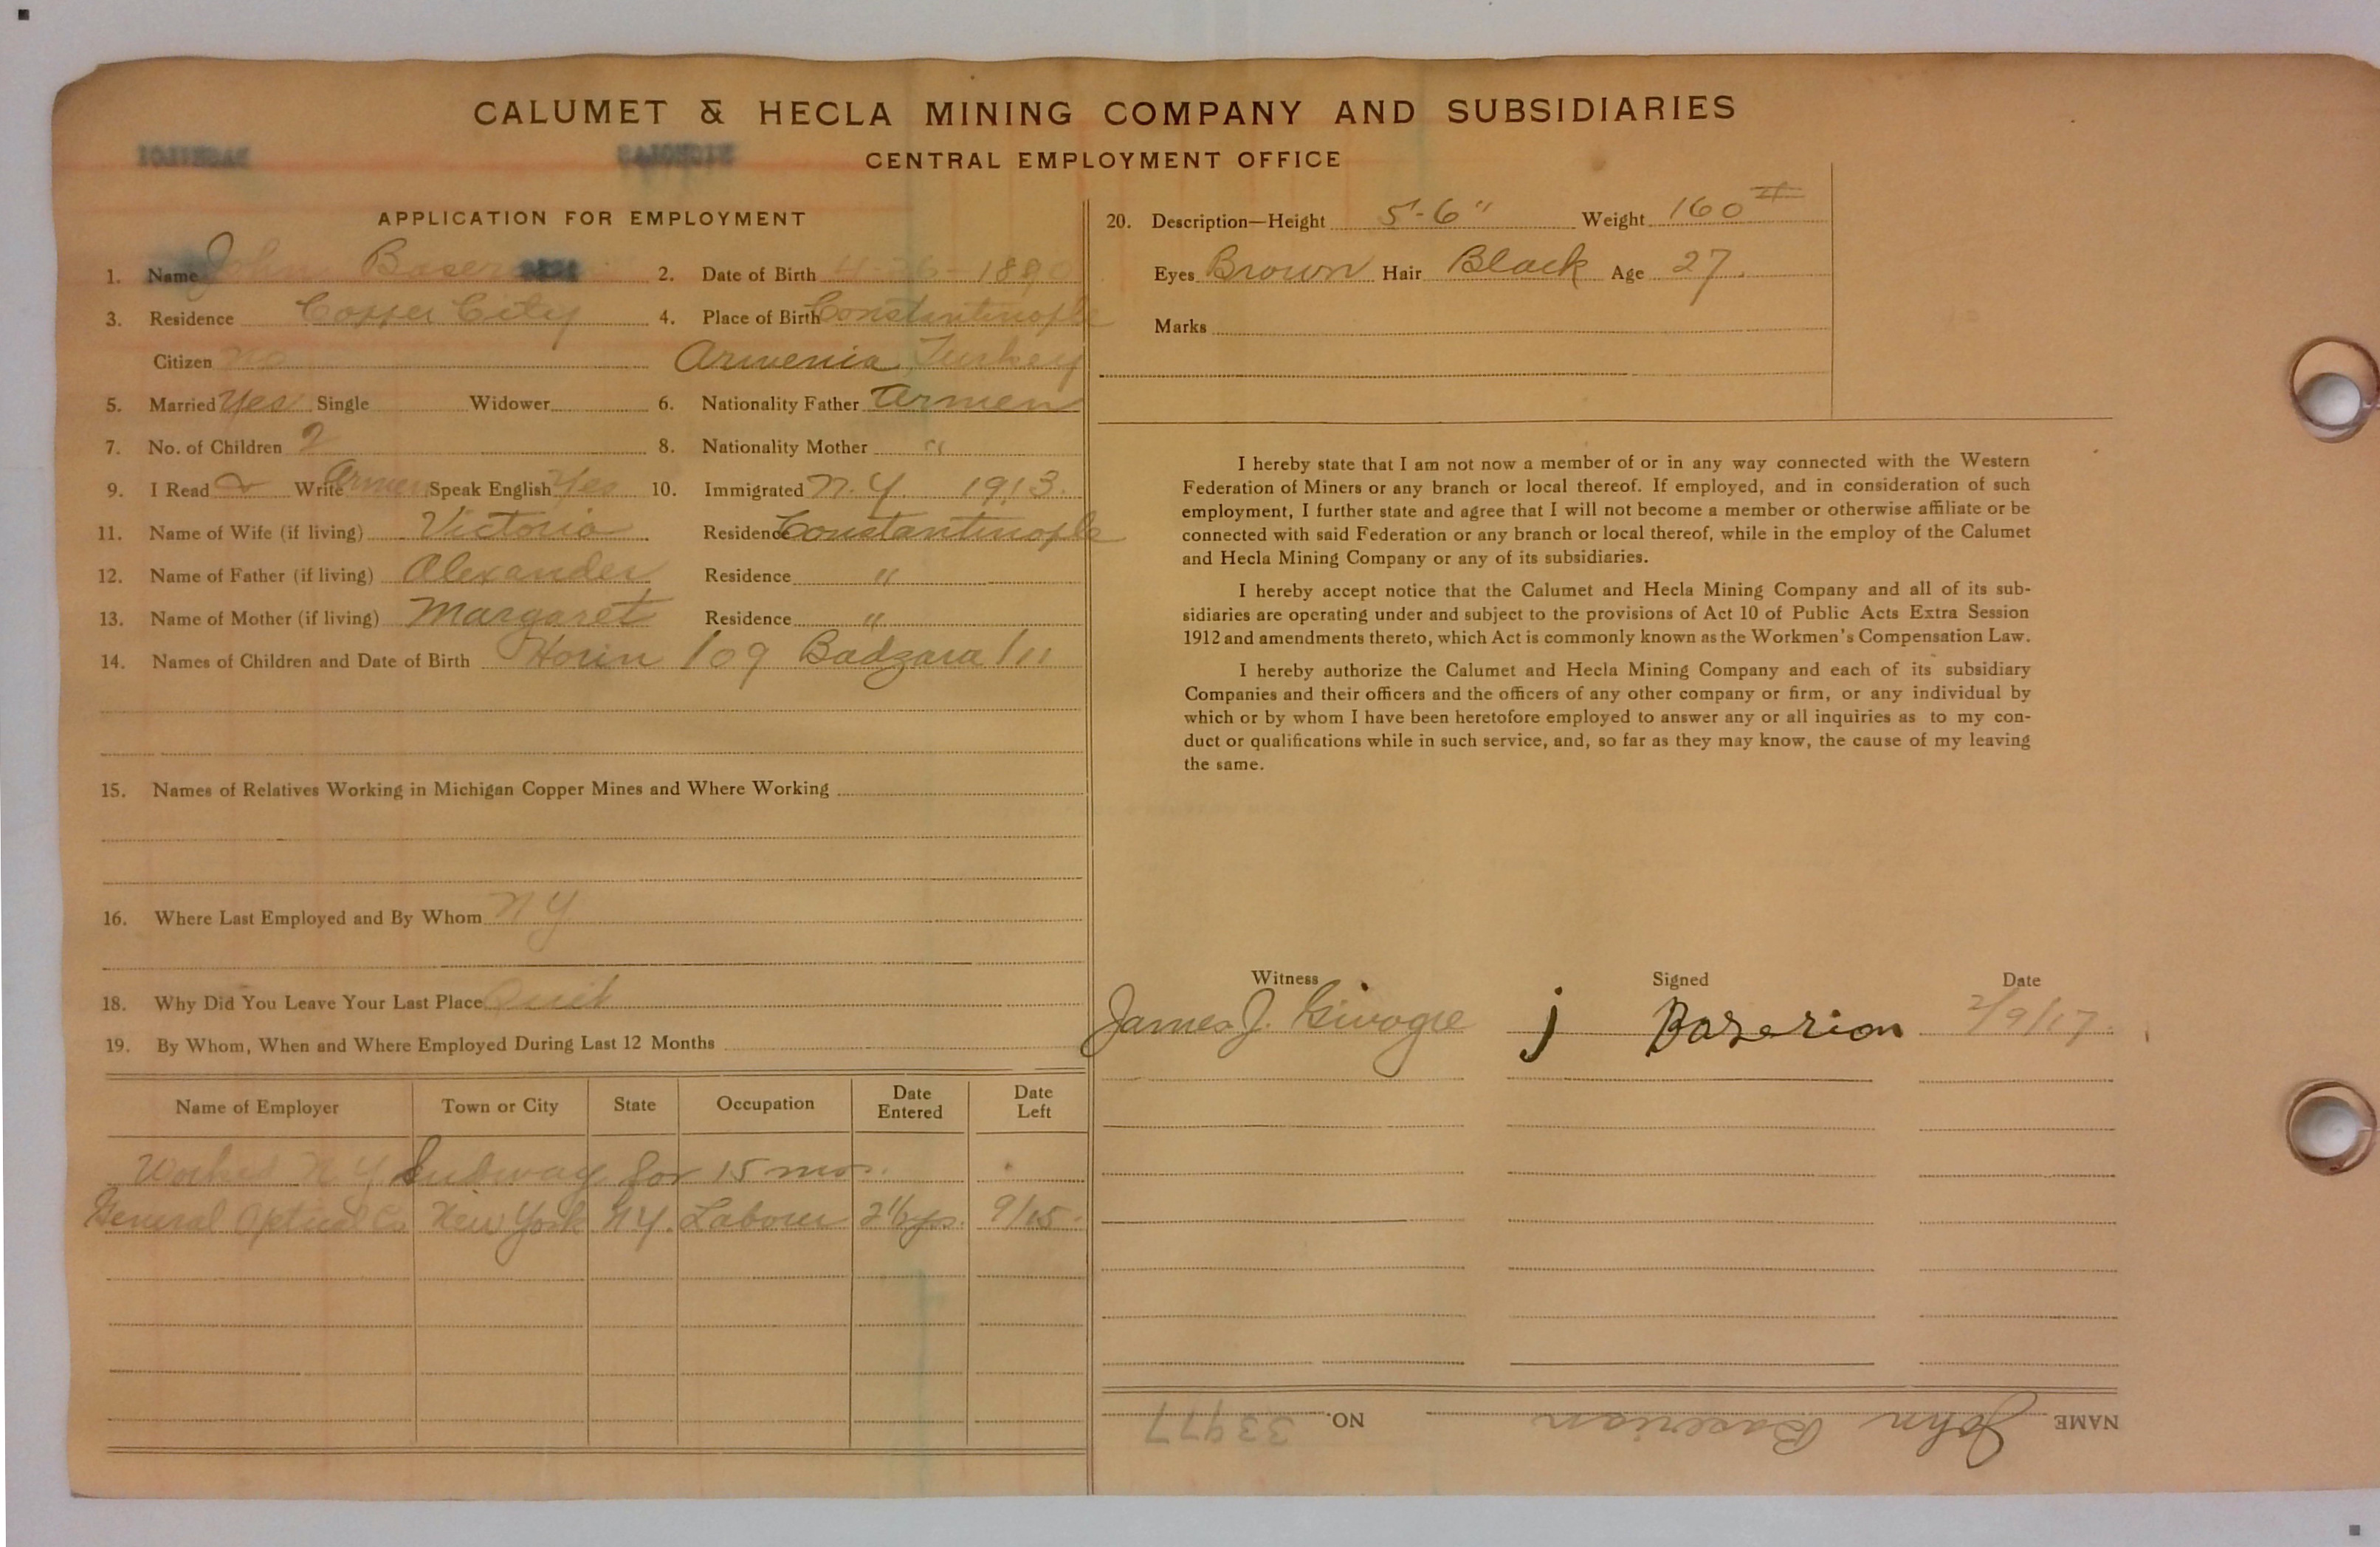 CALUMET & HECLA MINING COMPANY AND SUBSIDIARIES
CENTRAL EMPLOYMENT OFFICE
APPLICATION FOR EMPLOYMENT
1. Name John Baserian 2. Date of Birth 4-26-1890
3. Residence Copper City 4. Place of Birth Constantinople
Citizen no Armenia Turkey
5. Married Yes Single Widower 6. Nationality Father Armen
7. No. of Children 2 8. Nationality Mother "
9. I Read Write Armen Speak English Yes 10. Immigrated N.Y. 1913.
11. Name of Wife (if living) Victoria Residence Constantinople
12. Name of Father (if living) Alexander Residence "
13. Name of Mother (if living) Margaret Residence "
14. Names of Children and Date of Birth Horin /09 Badzara /11
15. Names of Relatives Working in Michigan Copper Mines and Where Working
16. Where Last Employed and By Whom NY
18. Why Did You Leave Your Last Place Quit
19. By Whom, When and Where Employed During Last 12 Months
Name of Employer Town or City State Occupation Date Entered Date Left
Worked N Y Subway for 15 mos.
General Optical Co New York N.Y. Labour 2 1/2 yrs. 9/15
20. Description—Height 5'-6" Weight 160 #
Eyes Brown Hair Black Age 27
Marks
I hereby state that I am not now a member of or in any way connected with the Western
Federation of Miners or any branch or local thereof. If employed, and in consideration of such
employment, I further state and agree that I will not become a member or otherwise affiliate or be
connected with said Federation or any branch or local thereof, while in the employ of the Calumet
and Hecla Mining Company or any of its subsidiaries.
I hereby accept notice that the Calumet and Hecla Mining Company and all of its sub-
sidiaries are operating under and subject to the provisions of Act 10 of Public Acts Extra Session
1912 and amendments thereto, which Act is commonly known as the Workmen's Compensation Law.
I hereby authorize the Calumet and Hecla Mining Company and each of its subsidiary
Companies and their officers and the officers of any other company or firm, or any individual by
which or by whom I have been heretofore employed to answer any or all inquiries as to my con-
duct or qualifications while in such service, and, so far as they may know, the cause of my leaving
the same.
Witness Signed Date
James J. j Baserion 2/9/17.
NAME John Baserian NO. 33977